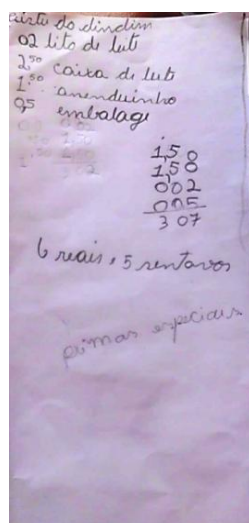 do dindim
02 lito de leite
2,50 caixa de leite
1,50 amenduinho
0,5 embalage
1,50
1,50
002
005
3 07
6 reais, 5 sentavos
primas especiais